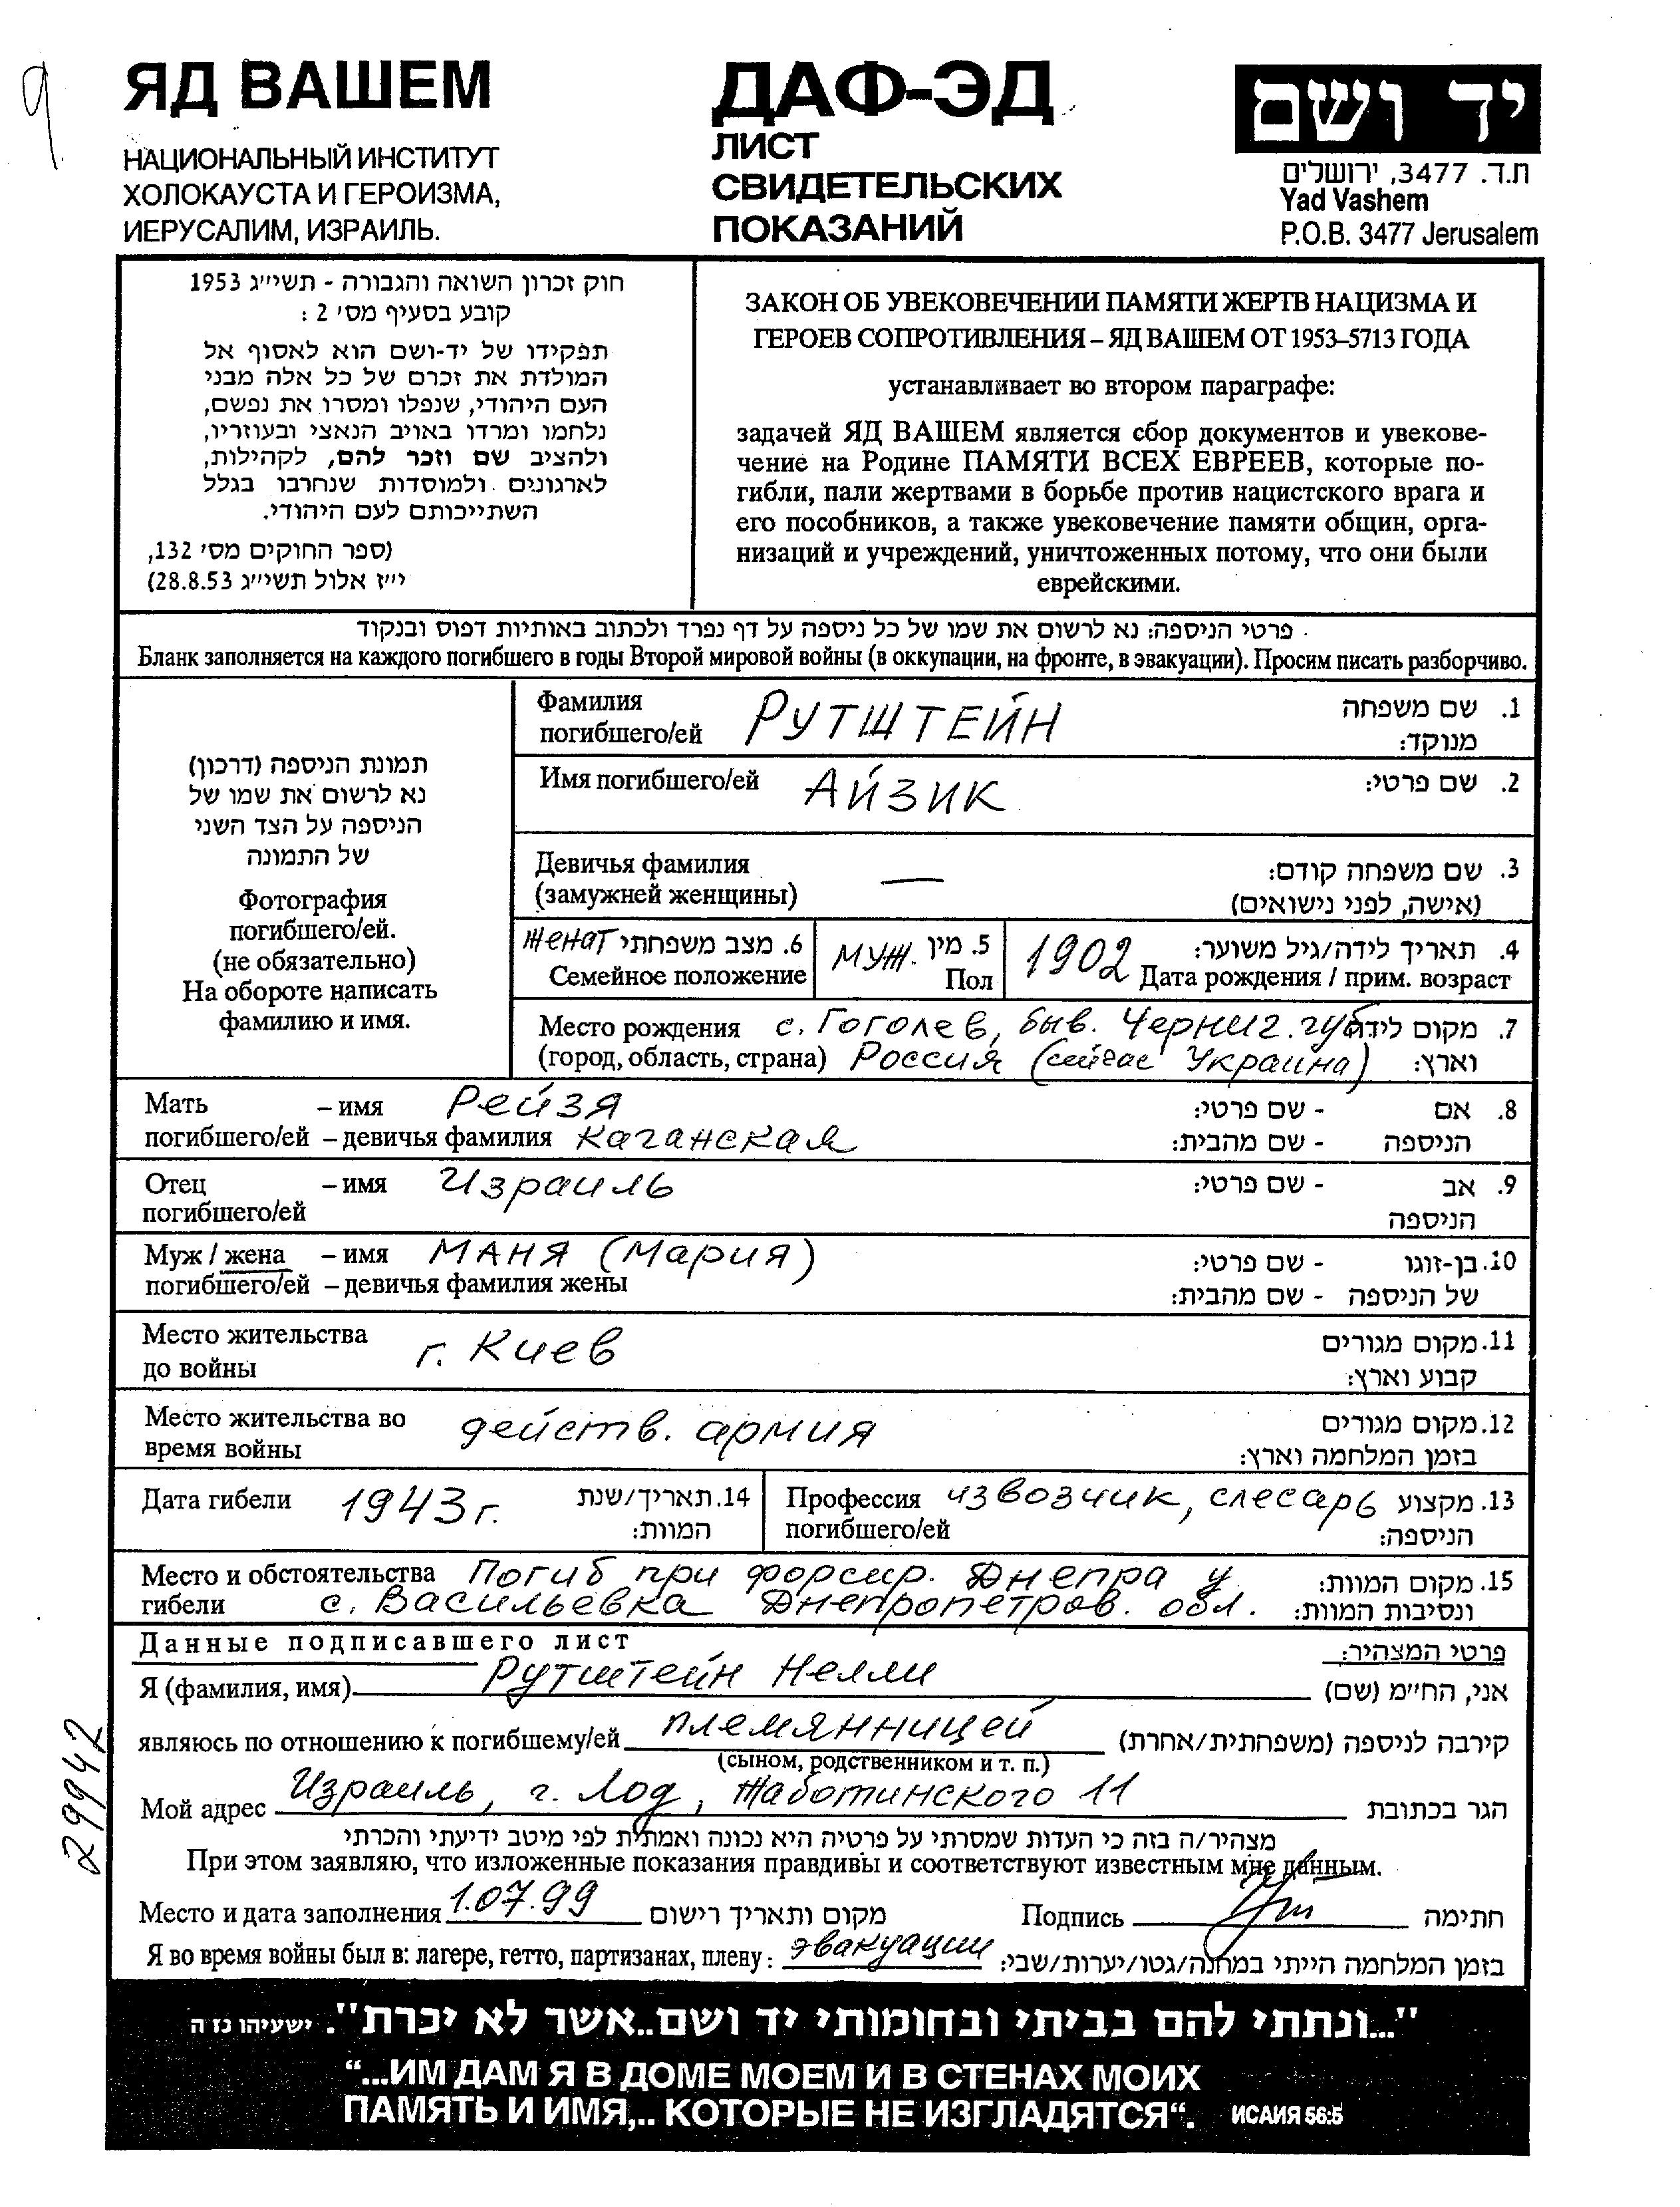 9
ЯД ВАШЕМ
НАЦИОНАЛЬНЫЙ ИНСТИТУТ
ХОЛОКАУСТА И ГЕРОИЗМА,
ИЕРУСАЛИМ, ИЗРАИЛЬ.
ДАФ-ЭД
ЛИСТ
СВИДЕТЕЛЬСКИХ
ПОКАЗАНИЙ
יד ושם
ת.ד. 3477, ירושלים
Yad Vashem
P.O.B. 3477 Jerusalem
חוק זכרון השואה והגבורה - תשי״ג 1953
קובע בסעיף מס׳ 2 :
תפקידו של יד-ושם הוא לאסוף אל
המולדת את זכרם של כל אלה מבני
העם היהודי, שנפלו ומסרו את נפשם,
נלחמו ומרדו באויב הנאצי ובעוזריו,
ולהציב שם וזכר להם, לקהילות,
לארגונים ולמוסדות שנחרבו בגלל
השתייכותם לעם היהודי.
(ספר החוקים מס׳ 132,
י״ז אלול תשי״ג 28.8.53)
ЗАКОН ОБ УВЕКОВЕЧЕНИИ ПАМЯТИ ЖЕРТВ НАЦИЗМА И
ГЕРОЕВ СОПРОТИВЛЕНИЯ – ЯД ВАШЕМ ОТ 1953–5713 ГОДА
устанавливает во втором параграфе:
задачей ЯД ВАШЕМ является сбор документов и увекове-
чение на Родине ПАМЯТИ ВСЕХ ЕВРЕЕВ, которые по-
гибли, пали жертвами в борьбе против нацистского врага и
его пособников, а также увековечение памяти общин, орга-
низаций и учреждений, уничтоженных потому, что они были
еврейскими.
פרטי הניספה: נא לרשום את שמו של כל ניספה על דף נפרד ולכתוב באותיות דפוס ובנקוד
Бланк заполняется на каждого погибшего в годы Второй мировой войны (в оккупации, на фронте, в эвакуации). Просим писать разборчиво.
תמונת הניספה (דרכון)
נא לרשום את שמו של
הניספה על הצד השני
של התמונה
Фотография
погибшего/ей.
(не обязательно)
На обороте написать
фамилию и имя.
Фамилия РУТШТЕЙН 1. שם משפחה
погибшего/ей מנוקד:
Имя погибшего/ей АЙЗИК 2. שם פרטי:
Девичья фамилия — 3. שם משפחה קודם:
(замужней женщины) (אישה, לפני נישואים)
женат 6. מצב משפחתי
Семейное положение
муж. 5. מין
Пол
1902 4. תאריך לידה/גיל משוער:
Дата рождения / прим. возраст
Место рождения с. Гоголев, быв. Черниг. губ. 7. מקום לידה
(город, область, страна) Россия (сейчас Украина) וארץ:
Мать – имя Рейзя 8. אם - שם פרטי:
погибшего/ей – девичья фамилия Каганская הניספה - שם מהבית:
Отец – имя Израиль 9. אב - שם פרטי:
погибшего/ей הניספה
Муж / жена – имя МАНЯ (Мария) 10. בן-זוגו - שם פרטי:
погибшего/ей – девичья фамилия жены של הניספה - שם מהבית:
Место жительства г. Киев 11. מקום מגורים
до войны קבוע וארץ:
Место жительства во действ. армия 12. מקום מגורים
время войны בזמן המלחמה וארץ:
Дата гибели 1943 г. 14. תאריך/שנת
המוות:
Профессия извозчик, слесарь 13. מקצוע
погибшего/ей הניספה:
Место и обстоятельства Погиб при форсир. Днепра у 15. מקום המוות:
гибели с. Васильевка Днепропетров. обл. ונסיבות המוות:
Данные подписавшего лист פרטי המצהיר:
Я (фамилия, имя) Рутштейн Нелли אני, הח״מ (שם)
являюсь по отношению к погибшему/ей племянницей קירבה לניספה (משפחתית/אחרת)
(сыном, родственником и т. п.)
Мой адрес Израиль, г. Лод, Жаботинского 11 הגר בכתובת
מצהיר/ה בזה כי העדות שמסרתי על פרטיה היא נכונה ואמתית לפי מיטב ידיעתי והכרתי
При этом заявляю, что изложенные показания правдивы и соответствуют известным мне данным.
Место и дата заполнения 1.07.99 מקום ותאריך רישום Подпись חתימה
Я во время войны был в: лагере, гетто, партизанах, плену: эвакуации בזמן המלחמה הייתי במחנה/גטו/יערות/שבי:
29942
"...ונתתי להם בביתי ובחומותי יד ושם..אשר לא יכרת". ישעיהו נז ה
“...ИМ ДАМ Я В ДОМЕ МОЕМ И В СТЕНАХ МОИХ
ПАМЯТЬ И ИМЯ,.. КОТОРЫЕ НЕ ИЗГЛАДЯТСЯ“. ИСАИЯ 56:5